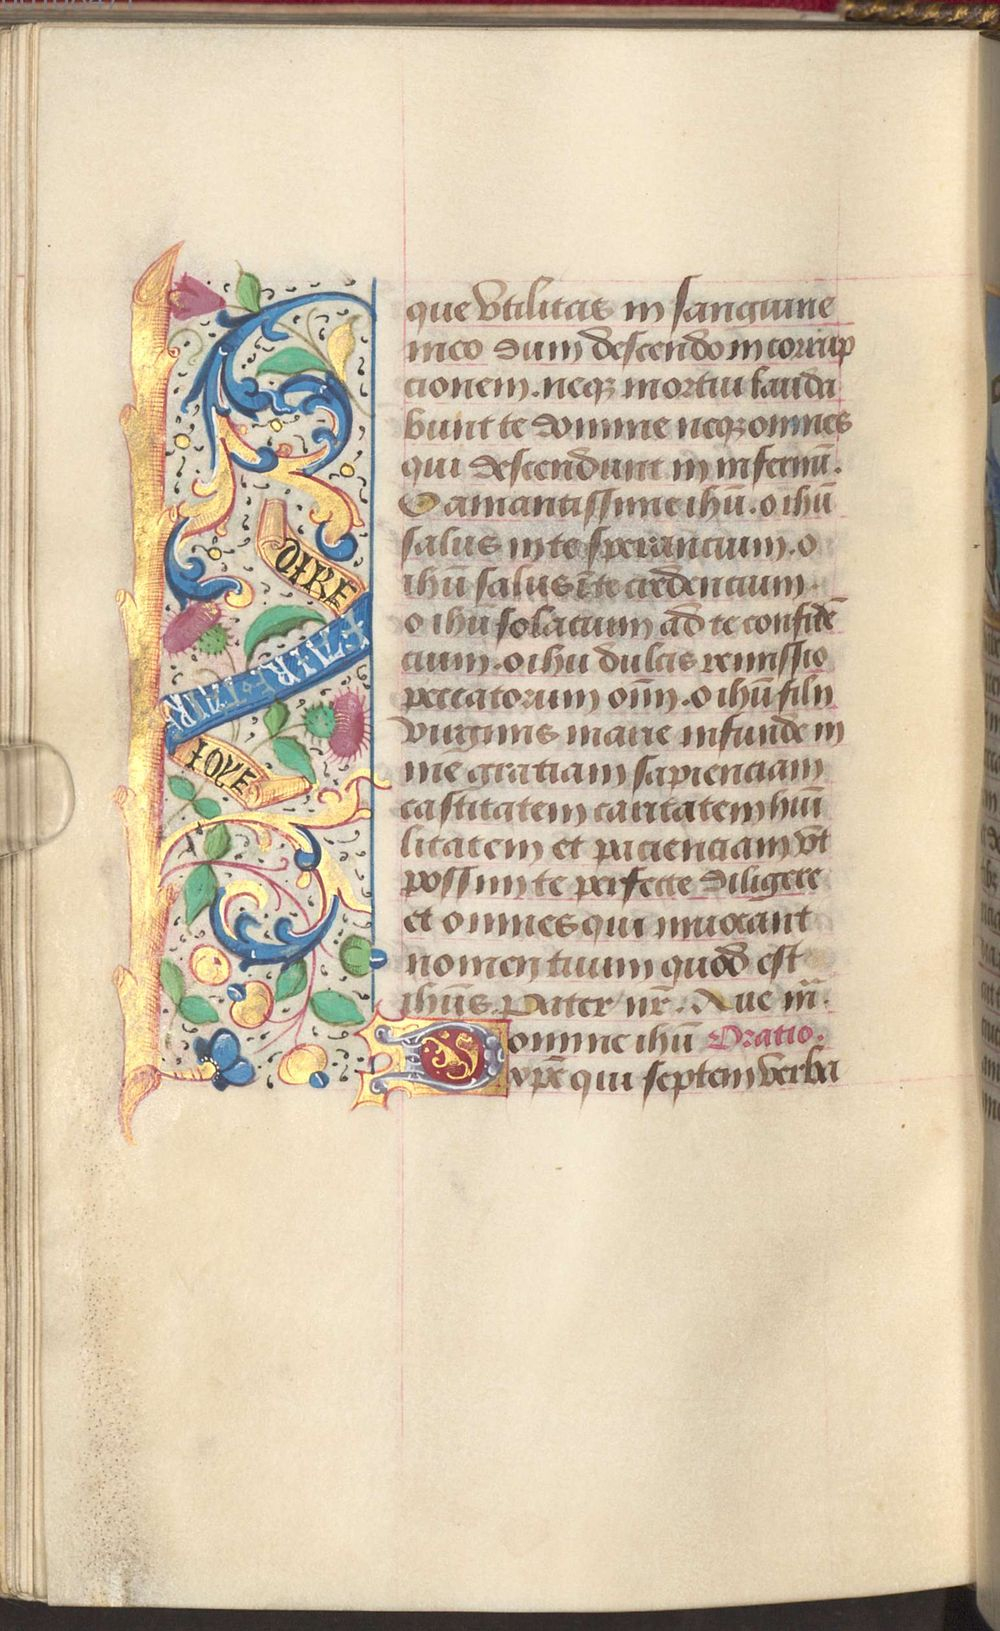 que vtilitas in sanguine
meo dum descendo in corrup
cionem. neqz mortui lauda
bunt te domine neqz omnes
qui descendunt in infernū.
O amantissime ihū. o ihū
salus in te sperancium. o
ihū salus ī te credencium
o ihū solacium ad te confidē
cium. o ihu dulcis remissio
peccatorum oīm. o ihū filii
virginis marie infunde in
me graciam sapienciam
castitatem caritatem hūi
litatem et pacienciam vt
possim te perfecte diligere
et omnes qui inuocant
nomen tuum quod est
ihūs. Pater nr̄. Aue m̄.
Domine ihū Oratio.
xpē qui septem verba
OIRE
IOYE